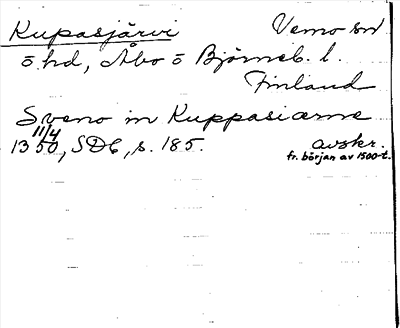 Kupasjärvi Vemo sn
ö. hd, Åbo o Björneb. l.
Finland
Sveno in Kuppasiærue
11/4
1350, SDb, s. 185. avskr.
fr. början av 1500-t.